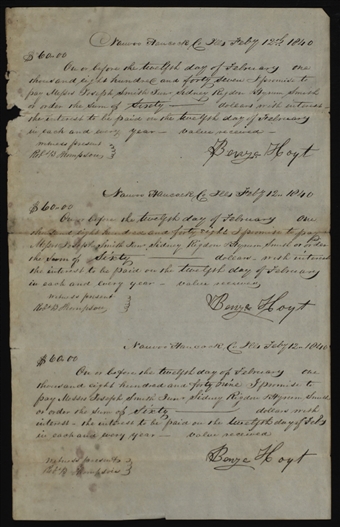 Nauvoo Hancock Co Ills Feby 12th 1840
$60.00
On or before the twelfth day of February one
thousand eight hundred and forty seven I promise to
pay Messrs Joseph Smith Junr Sidney Rigdon & Hyrum Smith
or order the Sum of Sixty dollars with interest
the interest to be paid on the twelfth day of February
in each and every year — value received —
witness present
Robt. D. Thompson
Benja Hoyt
Nauvoo Hancock Co Ills Feby 12 1840
$60.00
On or before the twelfth day of February One
thousand eight hundred and forty eight I promise to pay
Messrs Joseph Smith Junr Sidney Rigdon & Hyrum Smith or order
the Sum of Sixty dollars with interest
the interest to be paid on the twelfth day of February
in each and every year — value received
witness present
Robt. D. Thompson
Benja Hoyt
Nauvoo Hancock Co Ills Feby 12 1840
$60.00
On or before the twelfth day of February One
thousand eight hundred and forty nine I promise to
pay Messrs Joseph Smith Junr Sidney Rigdon & Hyrum Smith
or order the Sum of Sixty dollars with
interest — the interest to be paid on the twelfth day of Feby
in each and every year — value received
witness present
Robt. D. Thompson
Benja Hoyt